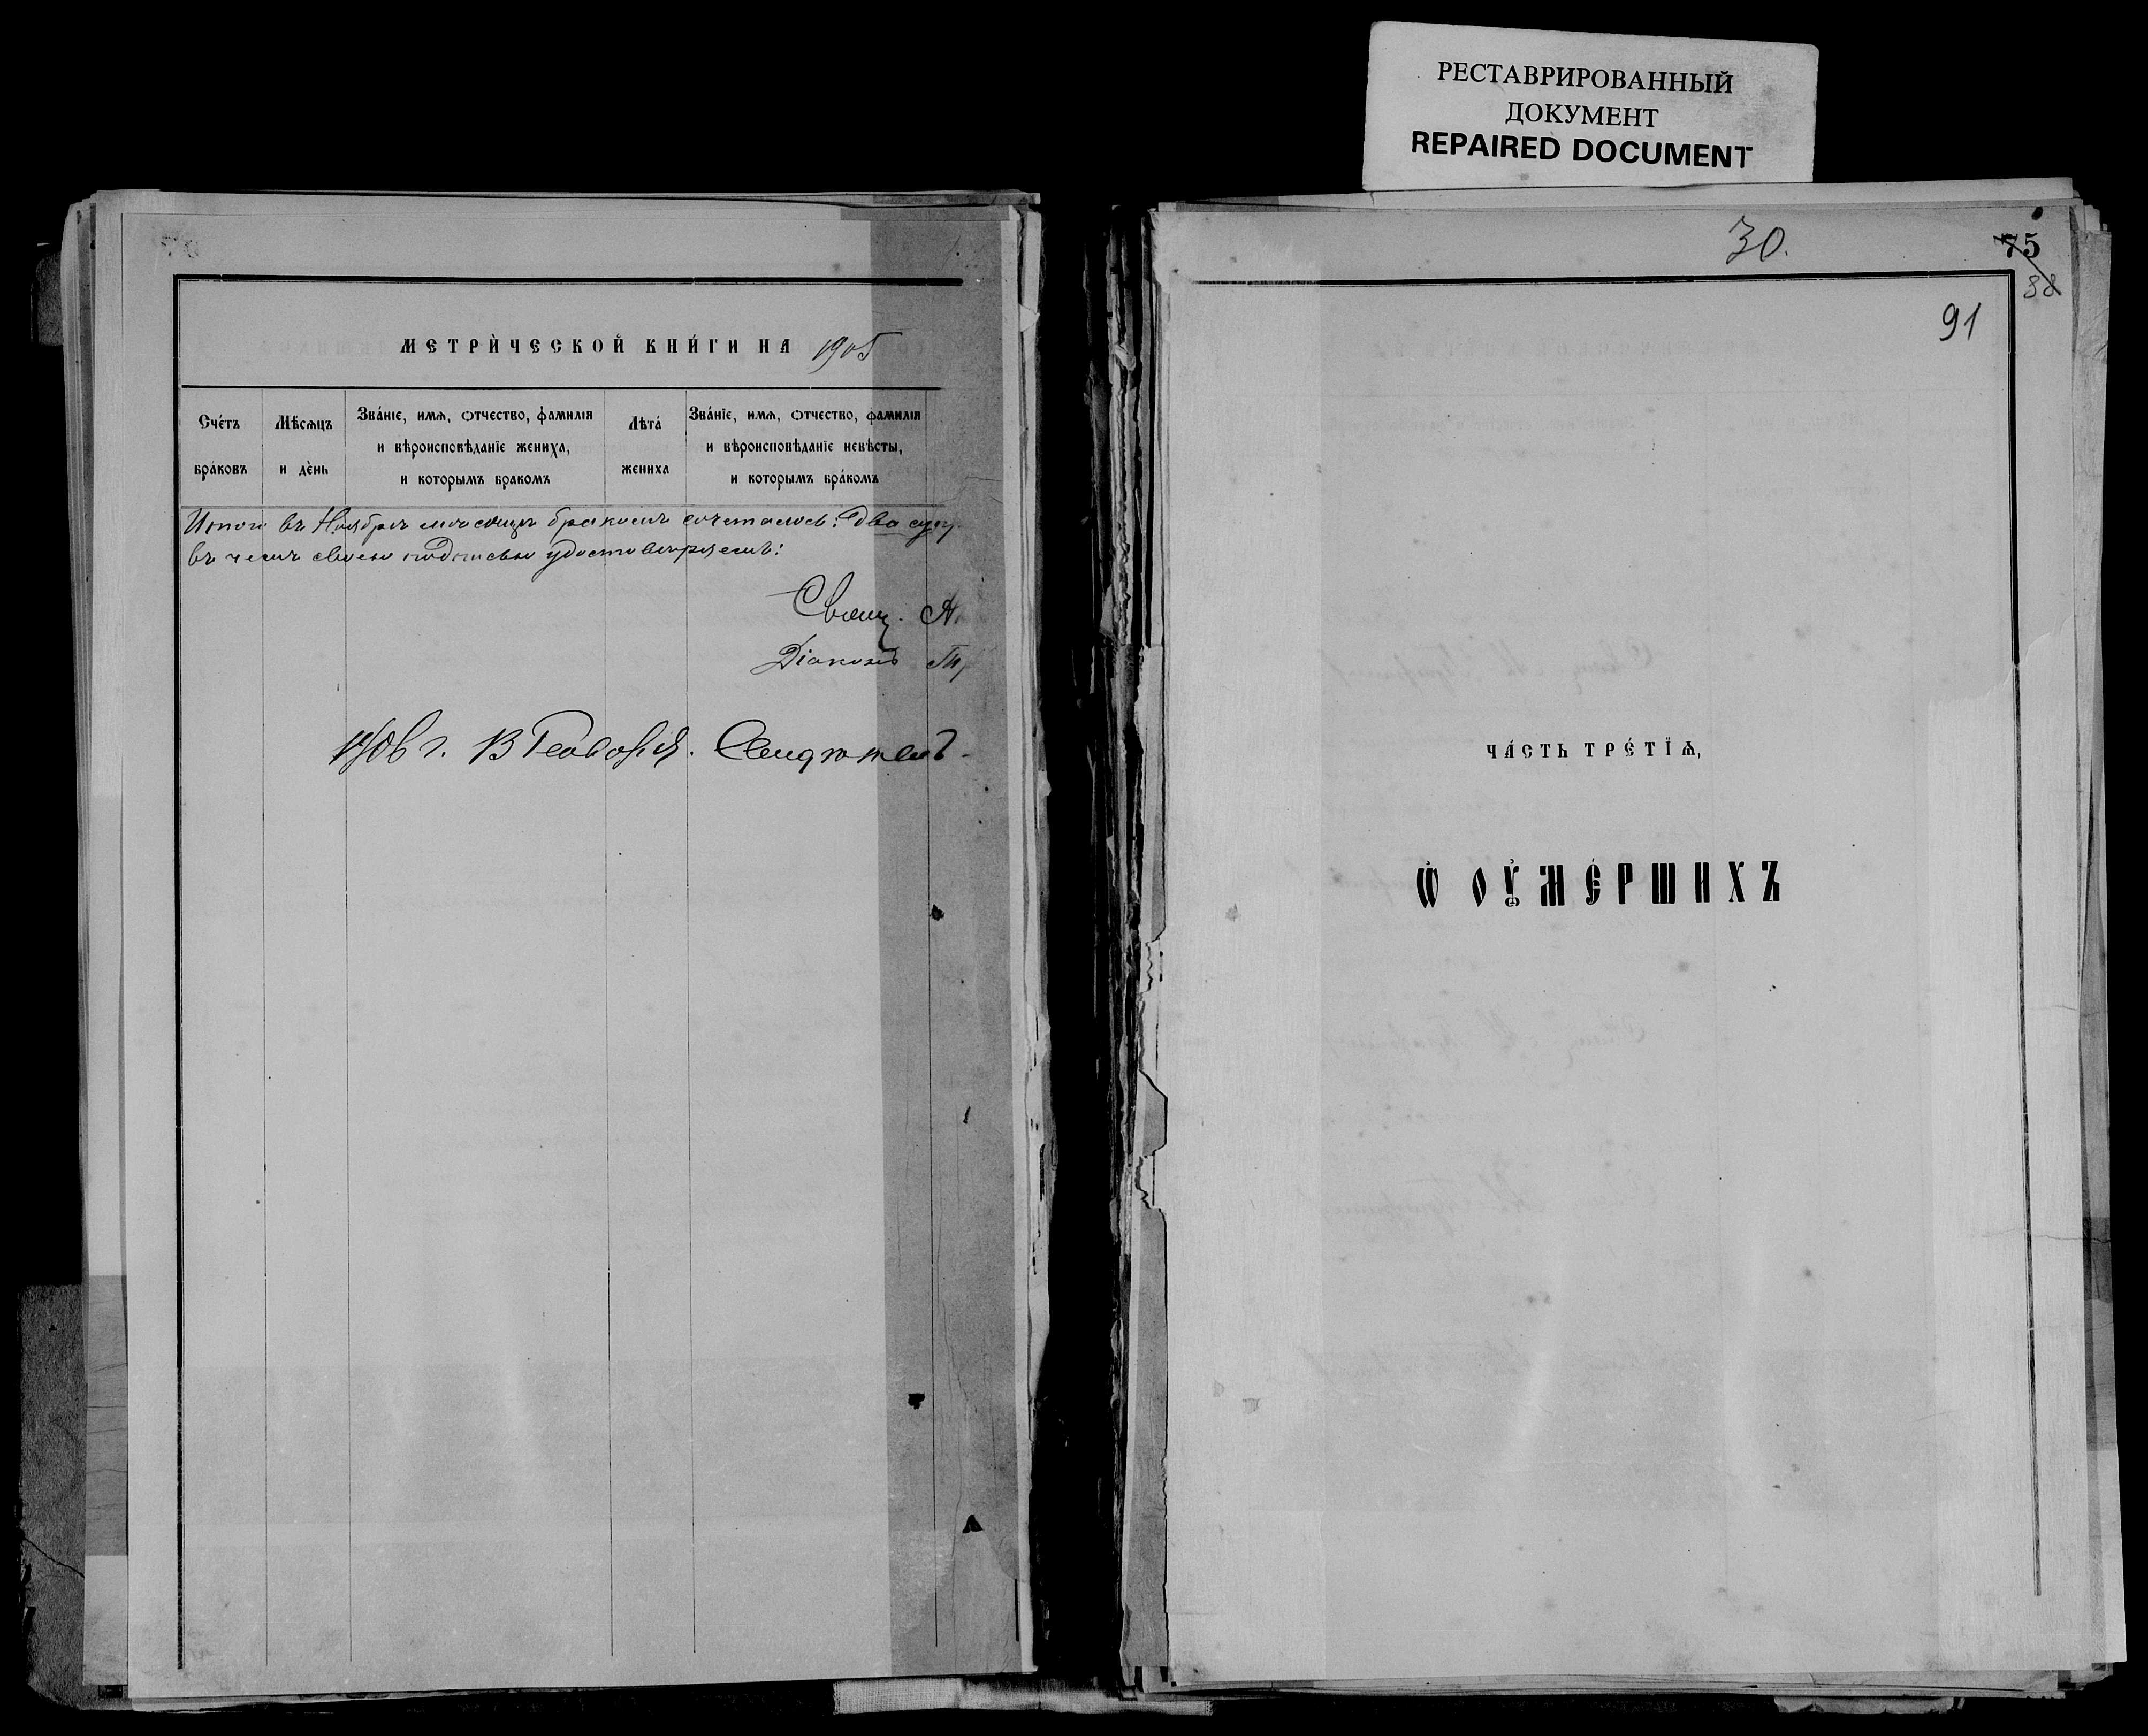 РЕСТАВРИРОВАННЫЙ
ДОКУМЕНТ
REPAIRED DOCUMENT
МЕТРИ́ЧЕСКОЙ КНИ́ГИ НА 1905
Сче́тъ бра́ковъ
Мѣ́сѧцъ и де́нь
Зва́нїе, имѧ, ѻтчество, фамилїѧ и вѣроисповѣданїе жениха, и которымъ бракомъ
Лѣта́ жениха
Зва́нїе, имѧ, ѻтчество, фамилїѧ и вѣроисповѣданїе невѣсты, и которымъ бра́комъ
Итого въ Ноябрѣ мѣсяцѣ бракомъ сочеталось: два суп
въ чемъ своею подписью удостовѣряемъ:
Свящ. А
Діаконъ
30.
75
88
91
ЧА́СТЬ ТРЕ́ТЇѦ,
Ѡ҆ ОУ҆МЕ́РШИХЪ